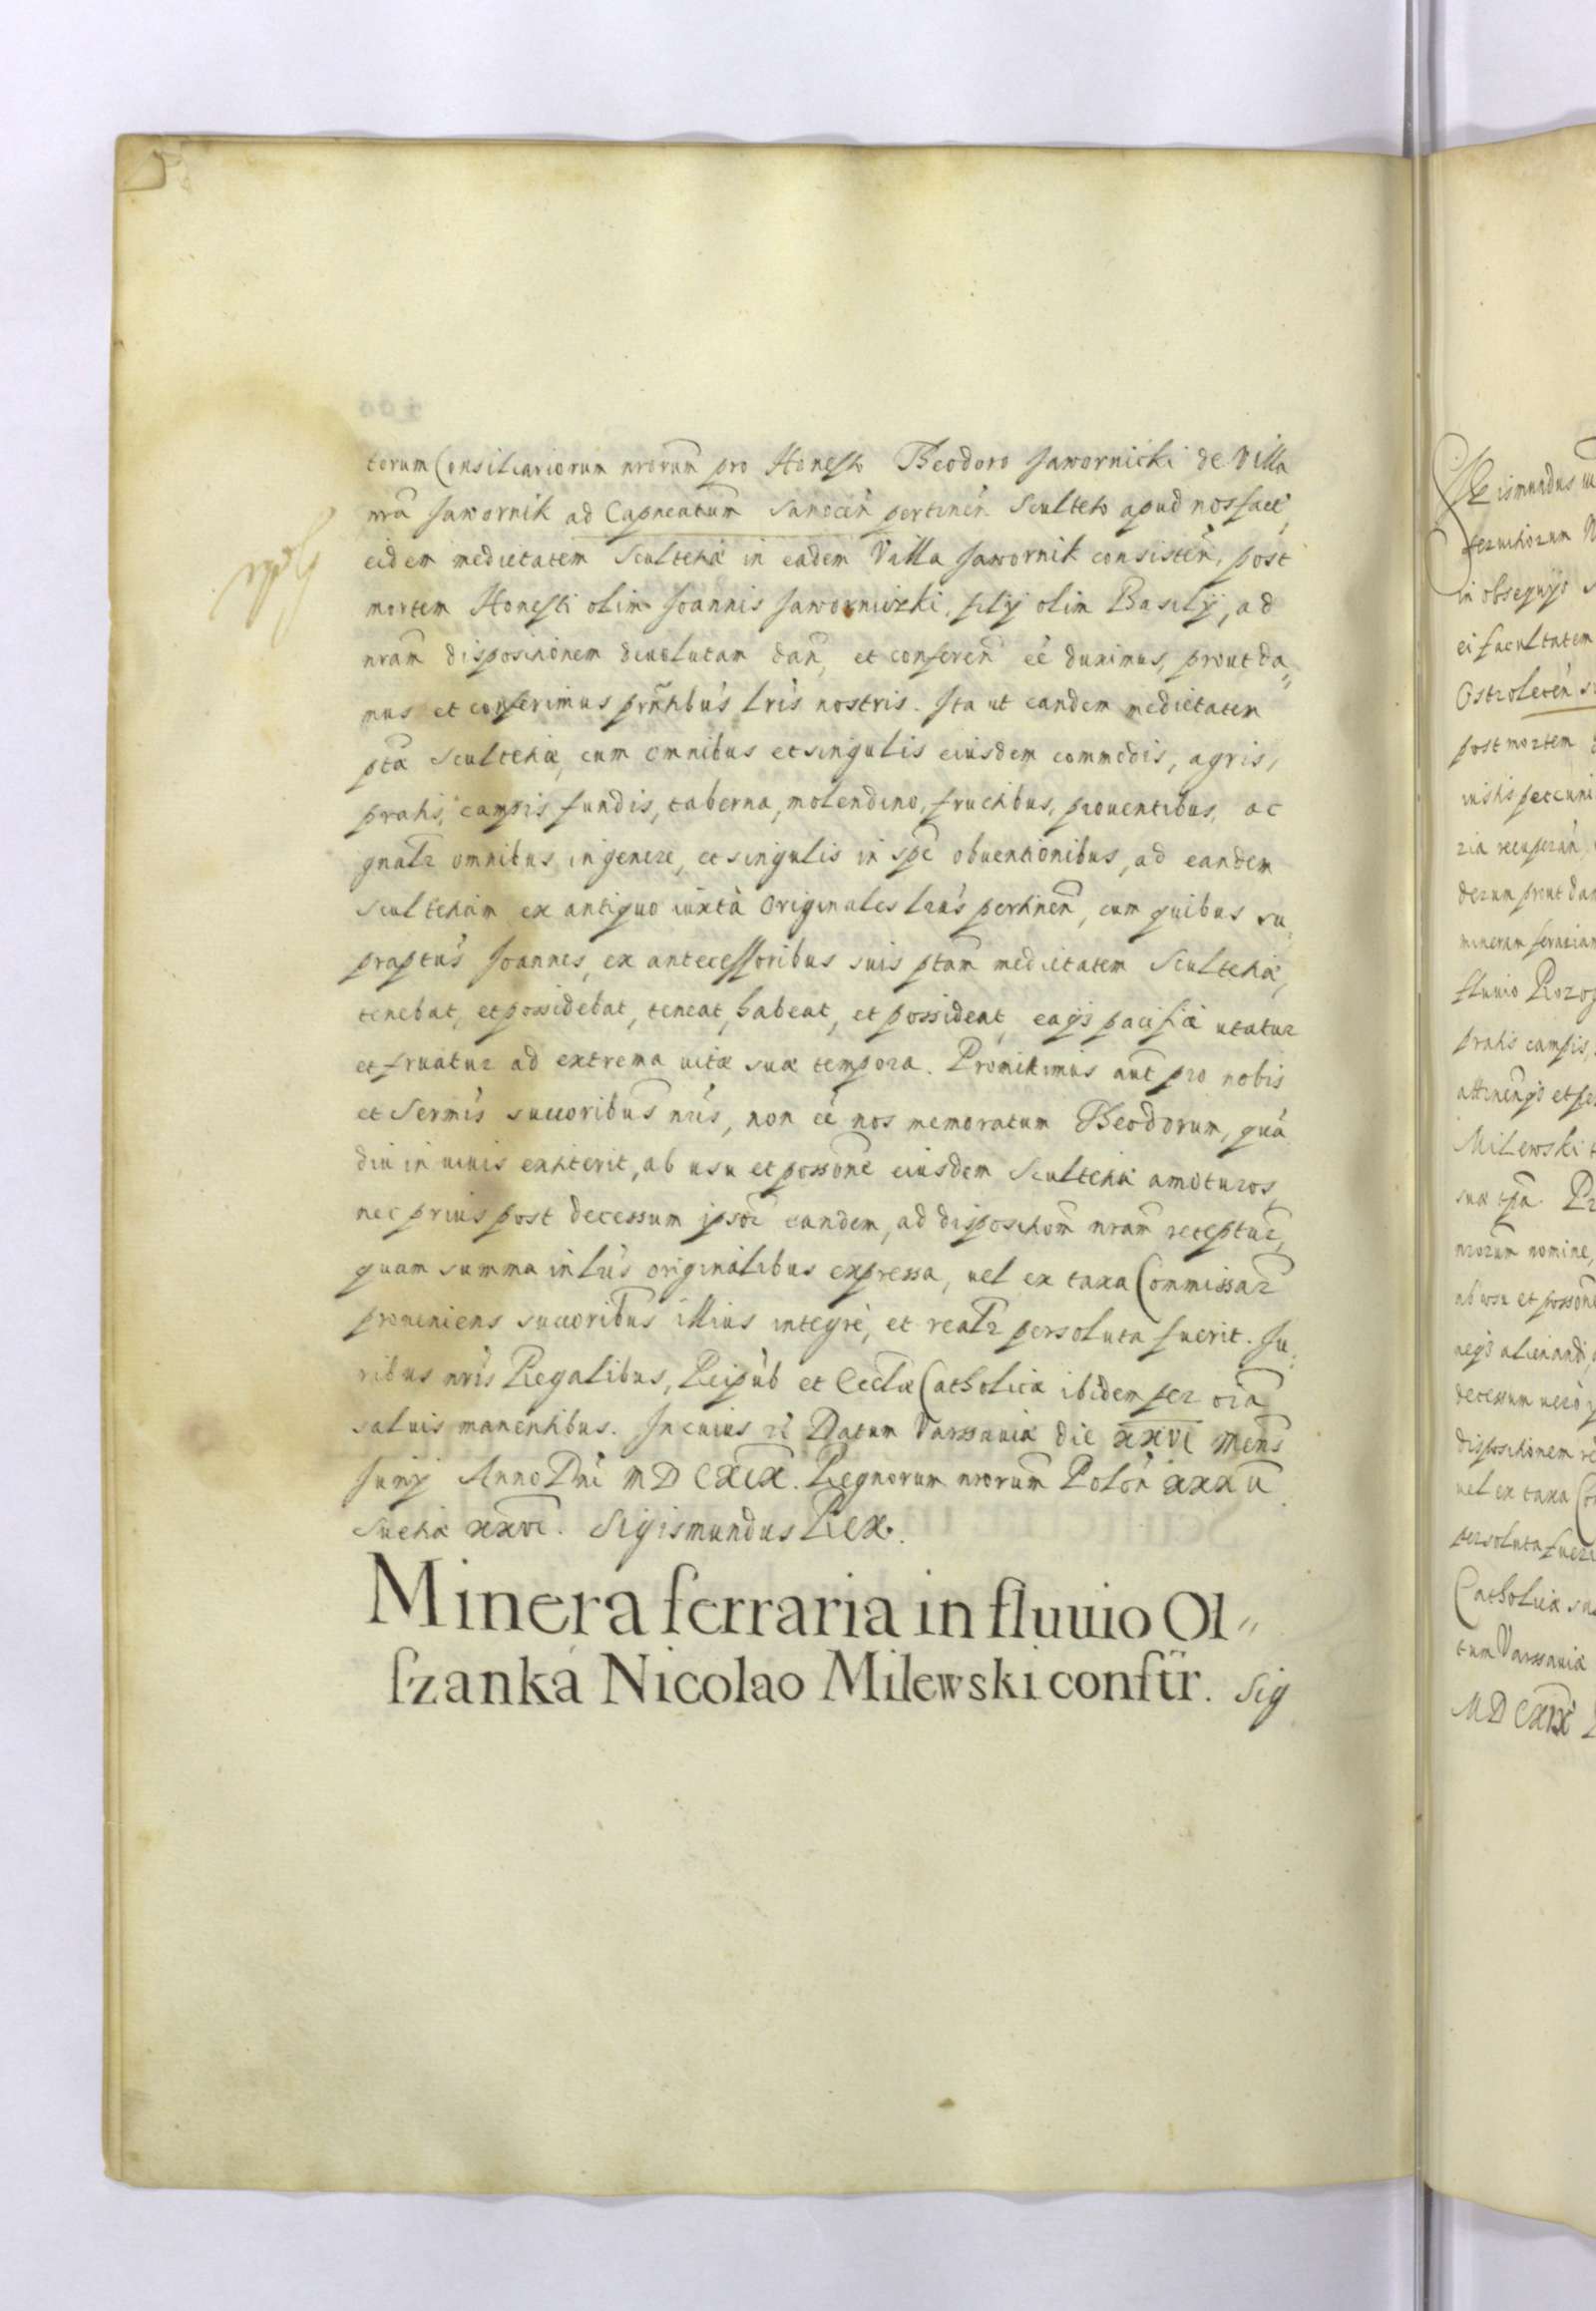 torum Consiliariorum nrorum pro Honesto Theodoro Jawornicki de Villa
nra Jawornik ad Capneatum Sanocen pertinen Sculteto apud nos fact,
eidem medietatem Scultetiæ in eadem Villa Jawornik consisten, post
mortem Honesti olim Joannis Jawornizki, filij olim Basilij, ad
nram dispositionem deuolutam dan, et conferen eé duximus, prout da„
mus et conferimus prntibus lris nostris. Ita ut eandem medietatem
ptæ Scultetiæ, cum omnibus et singulis eiusdem commodis, agris,
pratis, campis fundis, taberna, molendino, fructibus, prouentibus, ac
gnalr omnibus in genere, et singulis in spe obuentionibus, ad eandem
Scultetiam ex antiquo iuxtà Originales lras pertinen, cum quibus su,
praptus Joannes, ex antecessoribus suis ptam medietatem Scultetiæ,
tenebat, et possidebat, teneat, habeat, et possideat, eaqs pacificæ utatur
et fruatur ad extrema uitæ suæ tempora. Promittimus aut pro nobis
et Sermis succoribus nris, non eé nos memoratum Theodorum, quá
diu in uiuis extiterit, ab usu et possone eiusdem Scultetiæ amoturos,
nec prius post decessum ipsoé eandem, ad dispositiom nram receptur,
quam summa in lris originálibus expressa, uel ex taxa Commissar
proueniens succoribus illius integrè, et realr persoluta fuerit. Ju,
ribus nris Regalibus, Reipub et Ecclæ Catholicæ ibidem per oia
saluis manentibus. In cuius rei Datum Varssauiæ die XXVI Mens
Junij Anno Dni MDCXIX. Regnorum nrorum Polon XXXII
Suetiæ XXVI. Sigismundus Rex.
Minera ferraria in fluuio Ol„
ſzanká Nicolao Milewski confir. Sig
Ostrolecen
post mortem
fluuio Rozog
pratis campis,
Milewski
nrorum nomine,
decessum uerò
dispositionem re
uel ex taxa Co
persoluta fueri
Catholicæ sa
tum Varssauiæ
MDCXIX